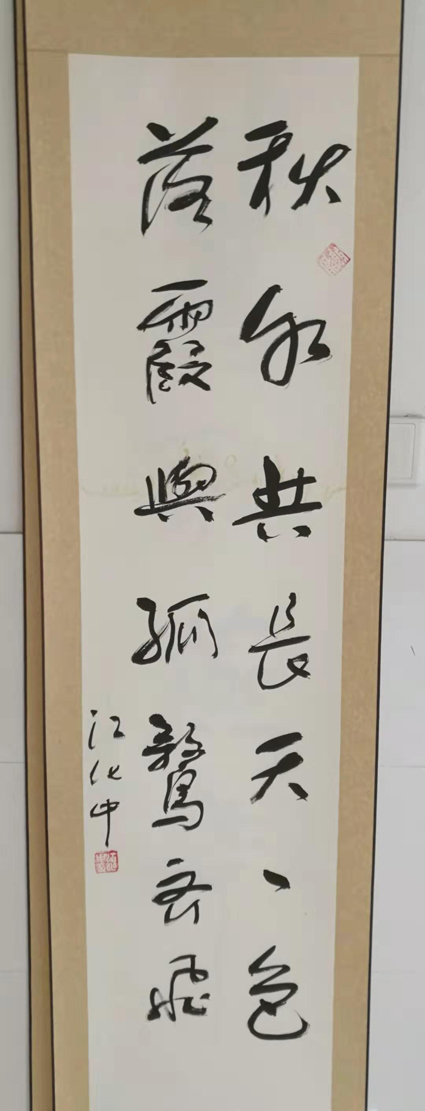 秋水共长天一色
落霞與孤鶩齐飛
江化中